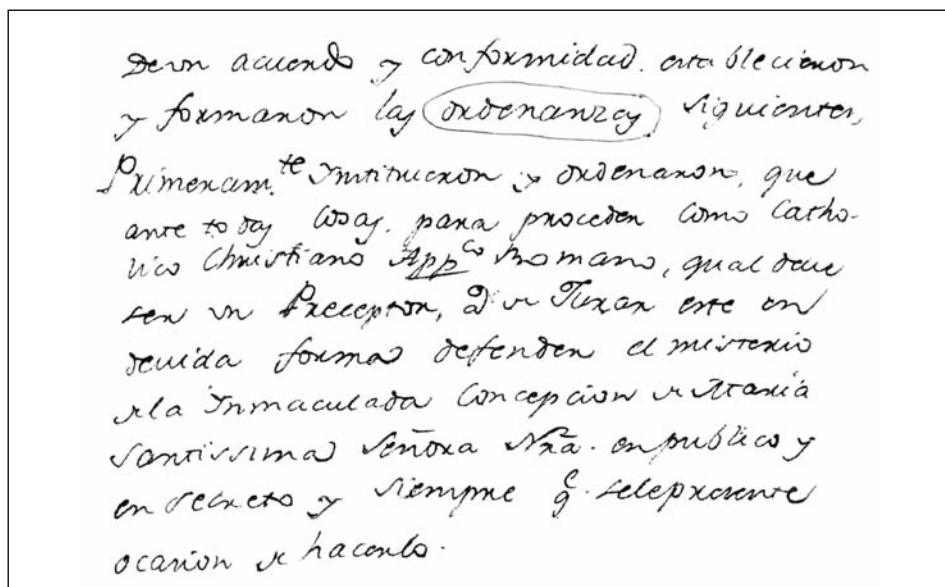 De un acuerdo y conformidad. establecieron
y formaron las ordenanzas siguientes,
Primeram.te Ynstitucron y ordenaron, que
ante todas cosas, para proceder como Catho-
lico Christiano App.co Romano, qual deve
ser un Preceptor, a de Jurar este en
devida forma defender el misterio
de la Inmaculada Concepcion de Maria
santissima Señora Nrã. en publico y
en secreto y siempre q.e se le presente
ocasion de hacerlo.